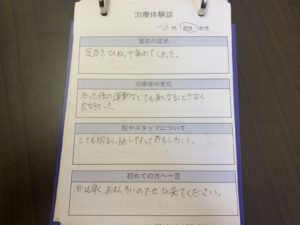 治療体験談
10代 男性 女性
最初の症状
足首をひねって痛めてしまった。
治療後の変化
治った後の運動などでも痛くなることがなく
良かった。
院やスタッフについて
とても明るく、話しやすくておもしろい。
初めての方へ一言
治は早く、おもしろいのでぜひ来てください。